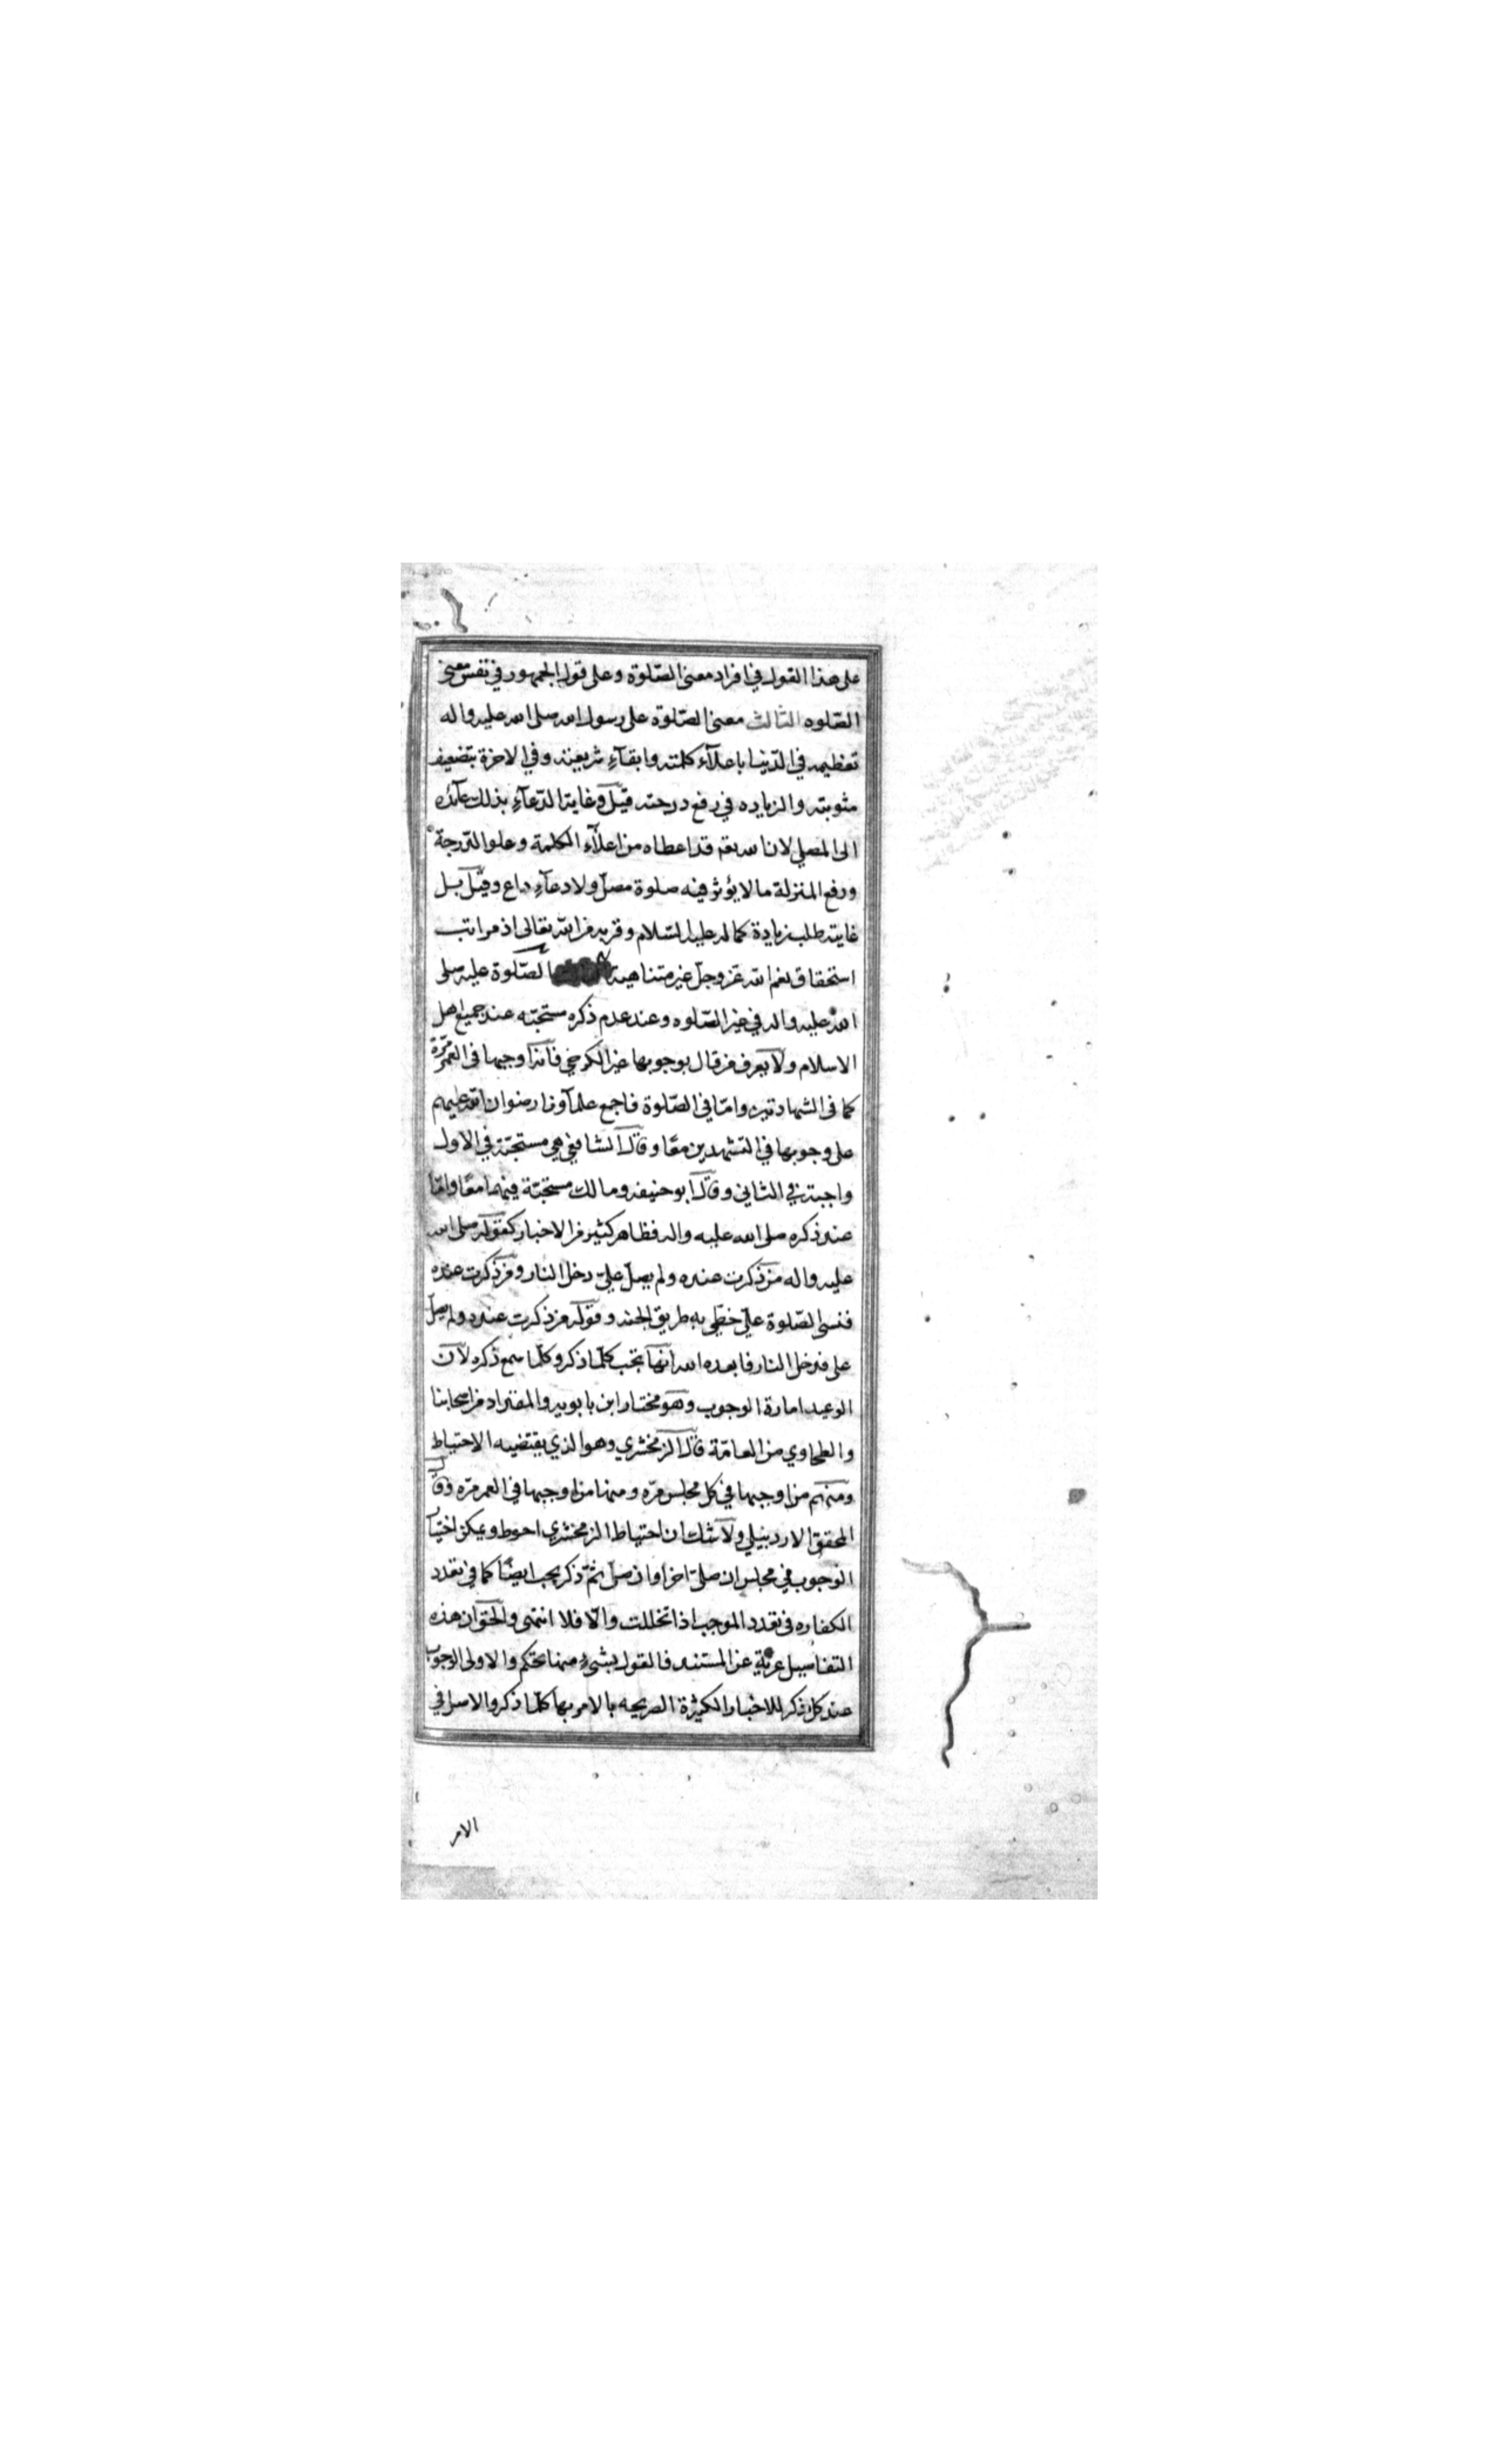 على هذا القول في افراد معنى الصّلوة وعلى قول الجمهور في نفس معنى
الصّلوه الثالث معنى الصّلوة على رسول الله صلى الله عليه واله
تعظيمه في الدّنيا باعلآء كلمته وابقآء شريعته وفي الاخرة بتضعيف
مثوبته والزياده في رفع درجته قيل وغاية الدّعآء بذلك عآئده
الى المصلي لان الله تعم قد اعطاه من اعلآء الكلمة وعلو الدّرجة
ورفع المنزلة ما لا يؤثر فيه صلوة مصلّ ولا دعآء داع وقيل بل
غايته طلب زيادة كماله عليه السّلام وقربه من الله تعالى اذ مراتب
استحقاق نعم الله عزّ وجلّ غير متناهية الصّلوة عليه صلى
الله عليه واله في غير الصّلوه وعند عدم ذكره مستحبّه عند جميع اهل
الاسلام ولا يعرف من قال بوجوبها غير الكرخي فانه اوجبها في العمر مرّة
كما في الشهادتين وامّا في الصّلوة فاجمع علمآؤنا رضوان الله عليهم
على وجوبها في التشهدين معًا وقال الشافعي هي مستحبّة في الاول
واجبة في الثاني وقال ابو حنيفه ومالك مستحبّة فيهما معًا وامّا
عند ذكره صلى الله عليه واله فظاهر كثير من الاخبار كقوله صلى الله
عليه واله من ذكرت عنده ولم يصلّ عليّ دخل النار ومن ذكرت عنده
فنسي الصّلوة عليّ خطّي به طريق الجنه وقوله من ذكرت عنده ولم يصلّ
علي فدخل النار فابعده الله انّها تجب كلّما ذكر وكلّما سمع ذكره لانّ
الوعيد امارة الوجوب وهو مختار ابن بابويه والمقداد من اصحابنا
والطحاوي من العامّة قال الزمخشري وهو الذي يقتضيه الاحتياط
ومنهم من اوجبها في كل مجلس مرّه ومنها من اوجبها في العمر مرّه وقال
المحقق الاردبيلي ولا شك ان احتياط الزمخشري احوط ويمكن اختيار
الوجوب في مجلس ان صلّى اخرا وان صلّى ثمّ ذكر يجب ايضًا كما في تعدد
الكفاره في تعدد الموجب اذا تخللت والّا فلا انتهى والحقّ ان هذه
التفاسيل عريّة عن المستند فالقول بشيء منها تحكم والاولى الوجوب
عند كل ذكر للاخبار الكثيرة الصريحه بالامر بها كلّما ذكر والاصل في
الامر